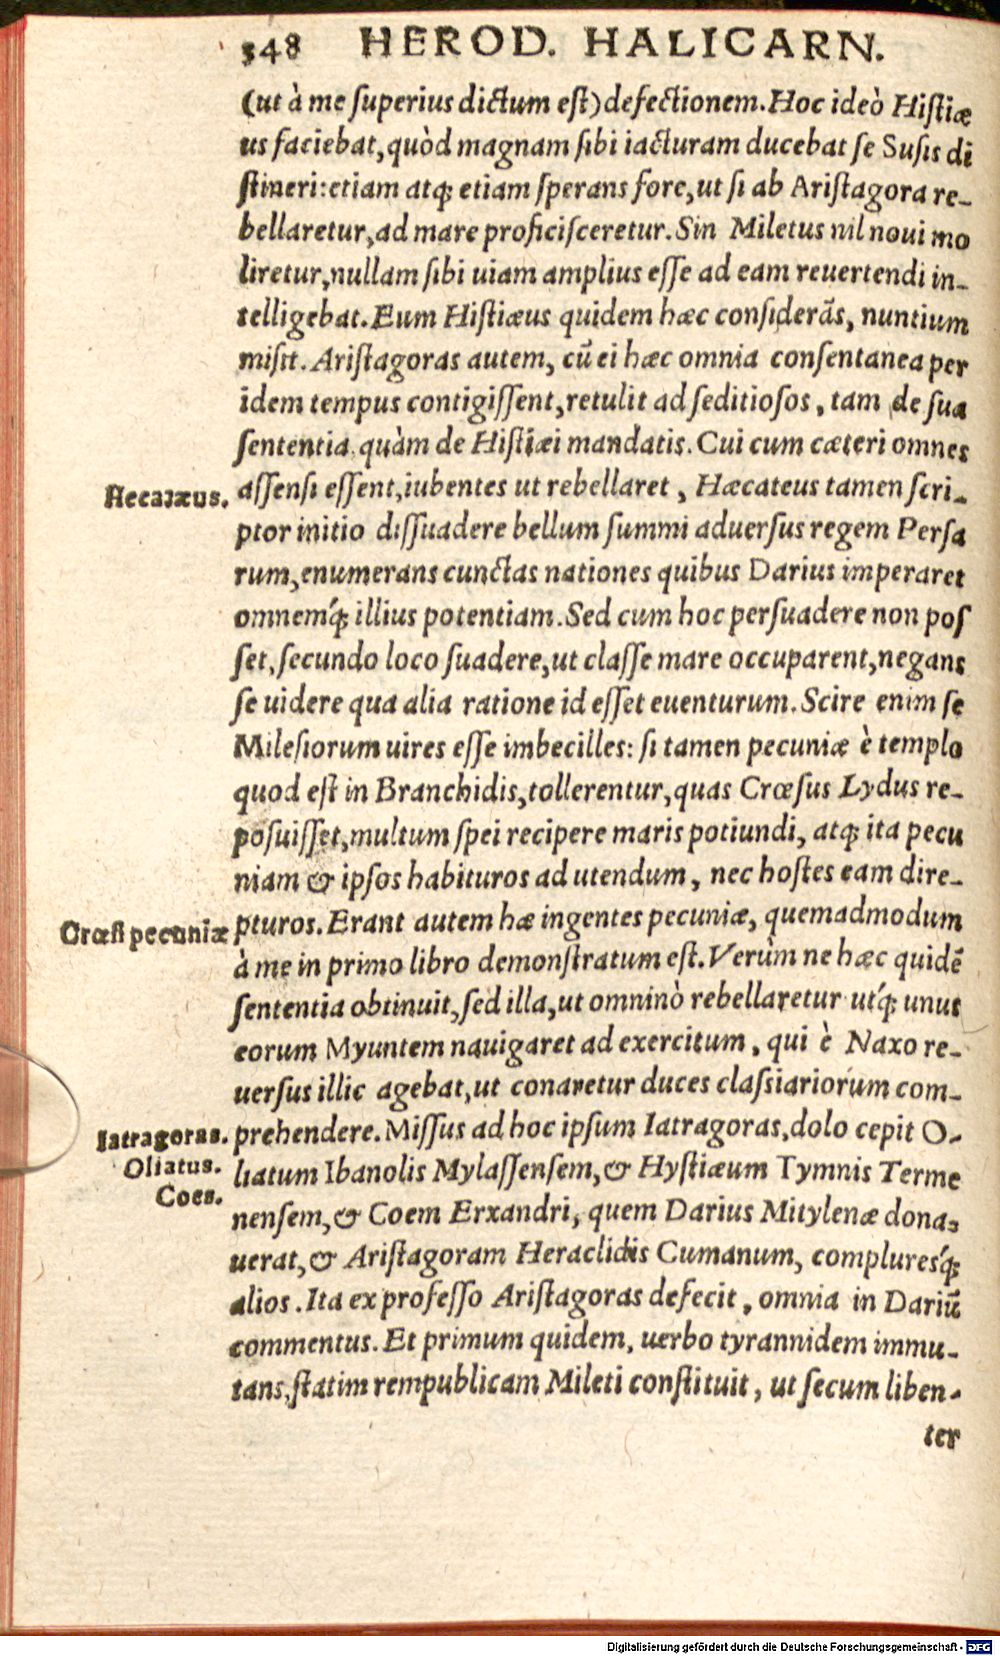 348 HEROD. HALICARN.
(ut à me ſuperius dictum eſt) defectionem. Hoc ideò Hiſtiæ
us faciebat, quòd magnam ſibi iacturam ducebat ſe Suſis di
ſtineri: etiam atq; etiam ſperans fore, ut ſi ab Ariſtagora re-
bellaretur, ad mare proficiſceretur. Sin Miletus nil noui mo
liretur, nullam ſibi uiam amplius eſſe ad eam reuertendi in-
telligebat. Eum Hiſtiæus quidem hæc conſiderãs, nuntium
miſit. Ariſtagoras autem, cũ ei hæc omnia conſentanea per
idem tempus contigiſſent, retulit ad ſeditioſos, tam de ſua
ſententia, quàm de Hiſtiæi mandatis. Cui cum cæteri omnes
Hecatæus. aſſenſi eſſent, iubentes ut rebellaret, Hæcateus tamen ſcri-
ptor initio diſſuadere bellum ſummi aduerſus regem Perſa
rum, enumerans cunctas nationes quibus Darius imperaret
omneḿq; illius potentiam. Sed cum hoc perſuadere non poſ
ſet, ſecundo loco ſuadere, ut claſſe mare occuparent, negans
ſe uidere qua alia ratione id eſſet euenturum. Scire enim ſe
Mileſiorum uires eſſe imbecilles: ſi tamen pecuniæ è templo
quod eſt in Branchidis, tollerentur, quas Crœſus Lydus re-
poſuiſſet, multum ſpei recipere maris potiundi, atq; ita pecu
niam & ipſos habituros ad utendum, nec hoſtes eam dire-
Crœſi pecuniæ pturos. Erant autem hæ ingentes pecuniæ, quemadmodum
à me in primo libro demonſtratum eſt. Verùm ne hæc quidẽ
ſententia obtinuit, ſed illa, ut omninò rebellaretur ut́q; unus
eorum Myuntem nauigaret ad exercitum, qui è Naxo re-
uerſus illic agebat, ut conaretur duces claſsiariorum com-
Iatragoras. prehendere. Miſſus ad hoc ipſum Iatragoras, dolo cepit O-
Oliatus. liatum Ibanolis Mylaſſenſem, & Hyſtiæum Tymnis Terme
Coes. nenſem, & Coem Erxandri, quem Darius Mitylenæ dona-
uerat, & Ariſtagoram Heraclidis Cumanum, complureś́q;
alios. Ita ex profeſſo Ariſtagoras defecit, omnia in Dariũ
commentus. Et primum quidem, uerbo tyrannidem immu-
tans, ſtatim rempublicam Mileti conſtituit, ut ſecum liben-
ter
Digitalisierung gefördert durch die Deutsche Forschungsgemeinschaft - DFG